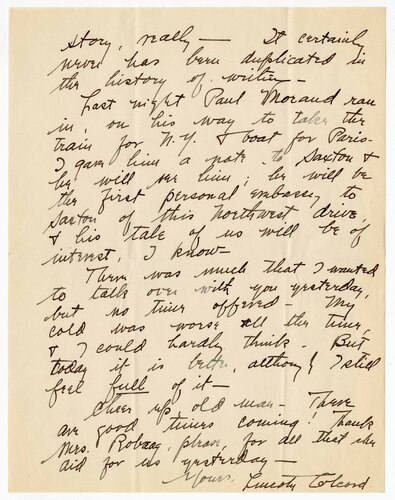 story, really — It certainly
never has been duplicated in
the history of writing —
Last night Paul Morand ran
in, on his way to take the
train for N.Y. & boat for Paris —
I gave him a note to Saxton &
he will see him; he will be
the first personal embassy to
Saxton of this Northwest drive,
& his tale of us will be of
interest, I know —
There was much that I wanted
to talk over with you yesterday,
but no time offered — My
cold was worse all the time,
& I could hardly think. But
today it is better, although I still
feel full of it —
Cheer up, old man — There
are good times coming! Thank
Mrs. , please, for all that she
did for us yesterday —
Yours,
Lincoln Colcord